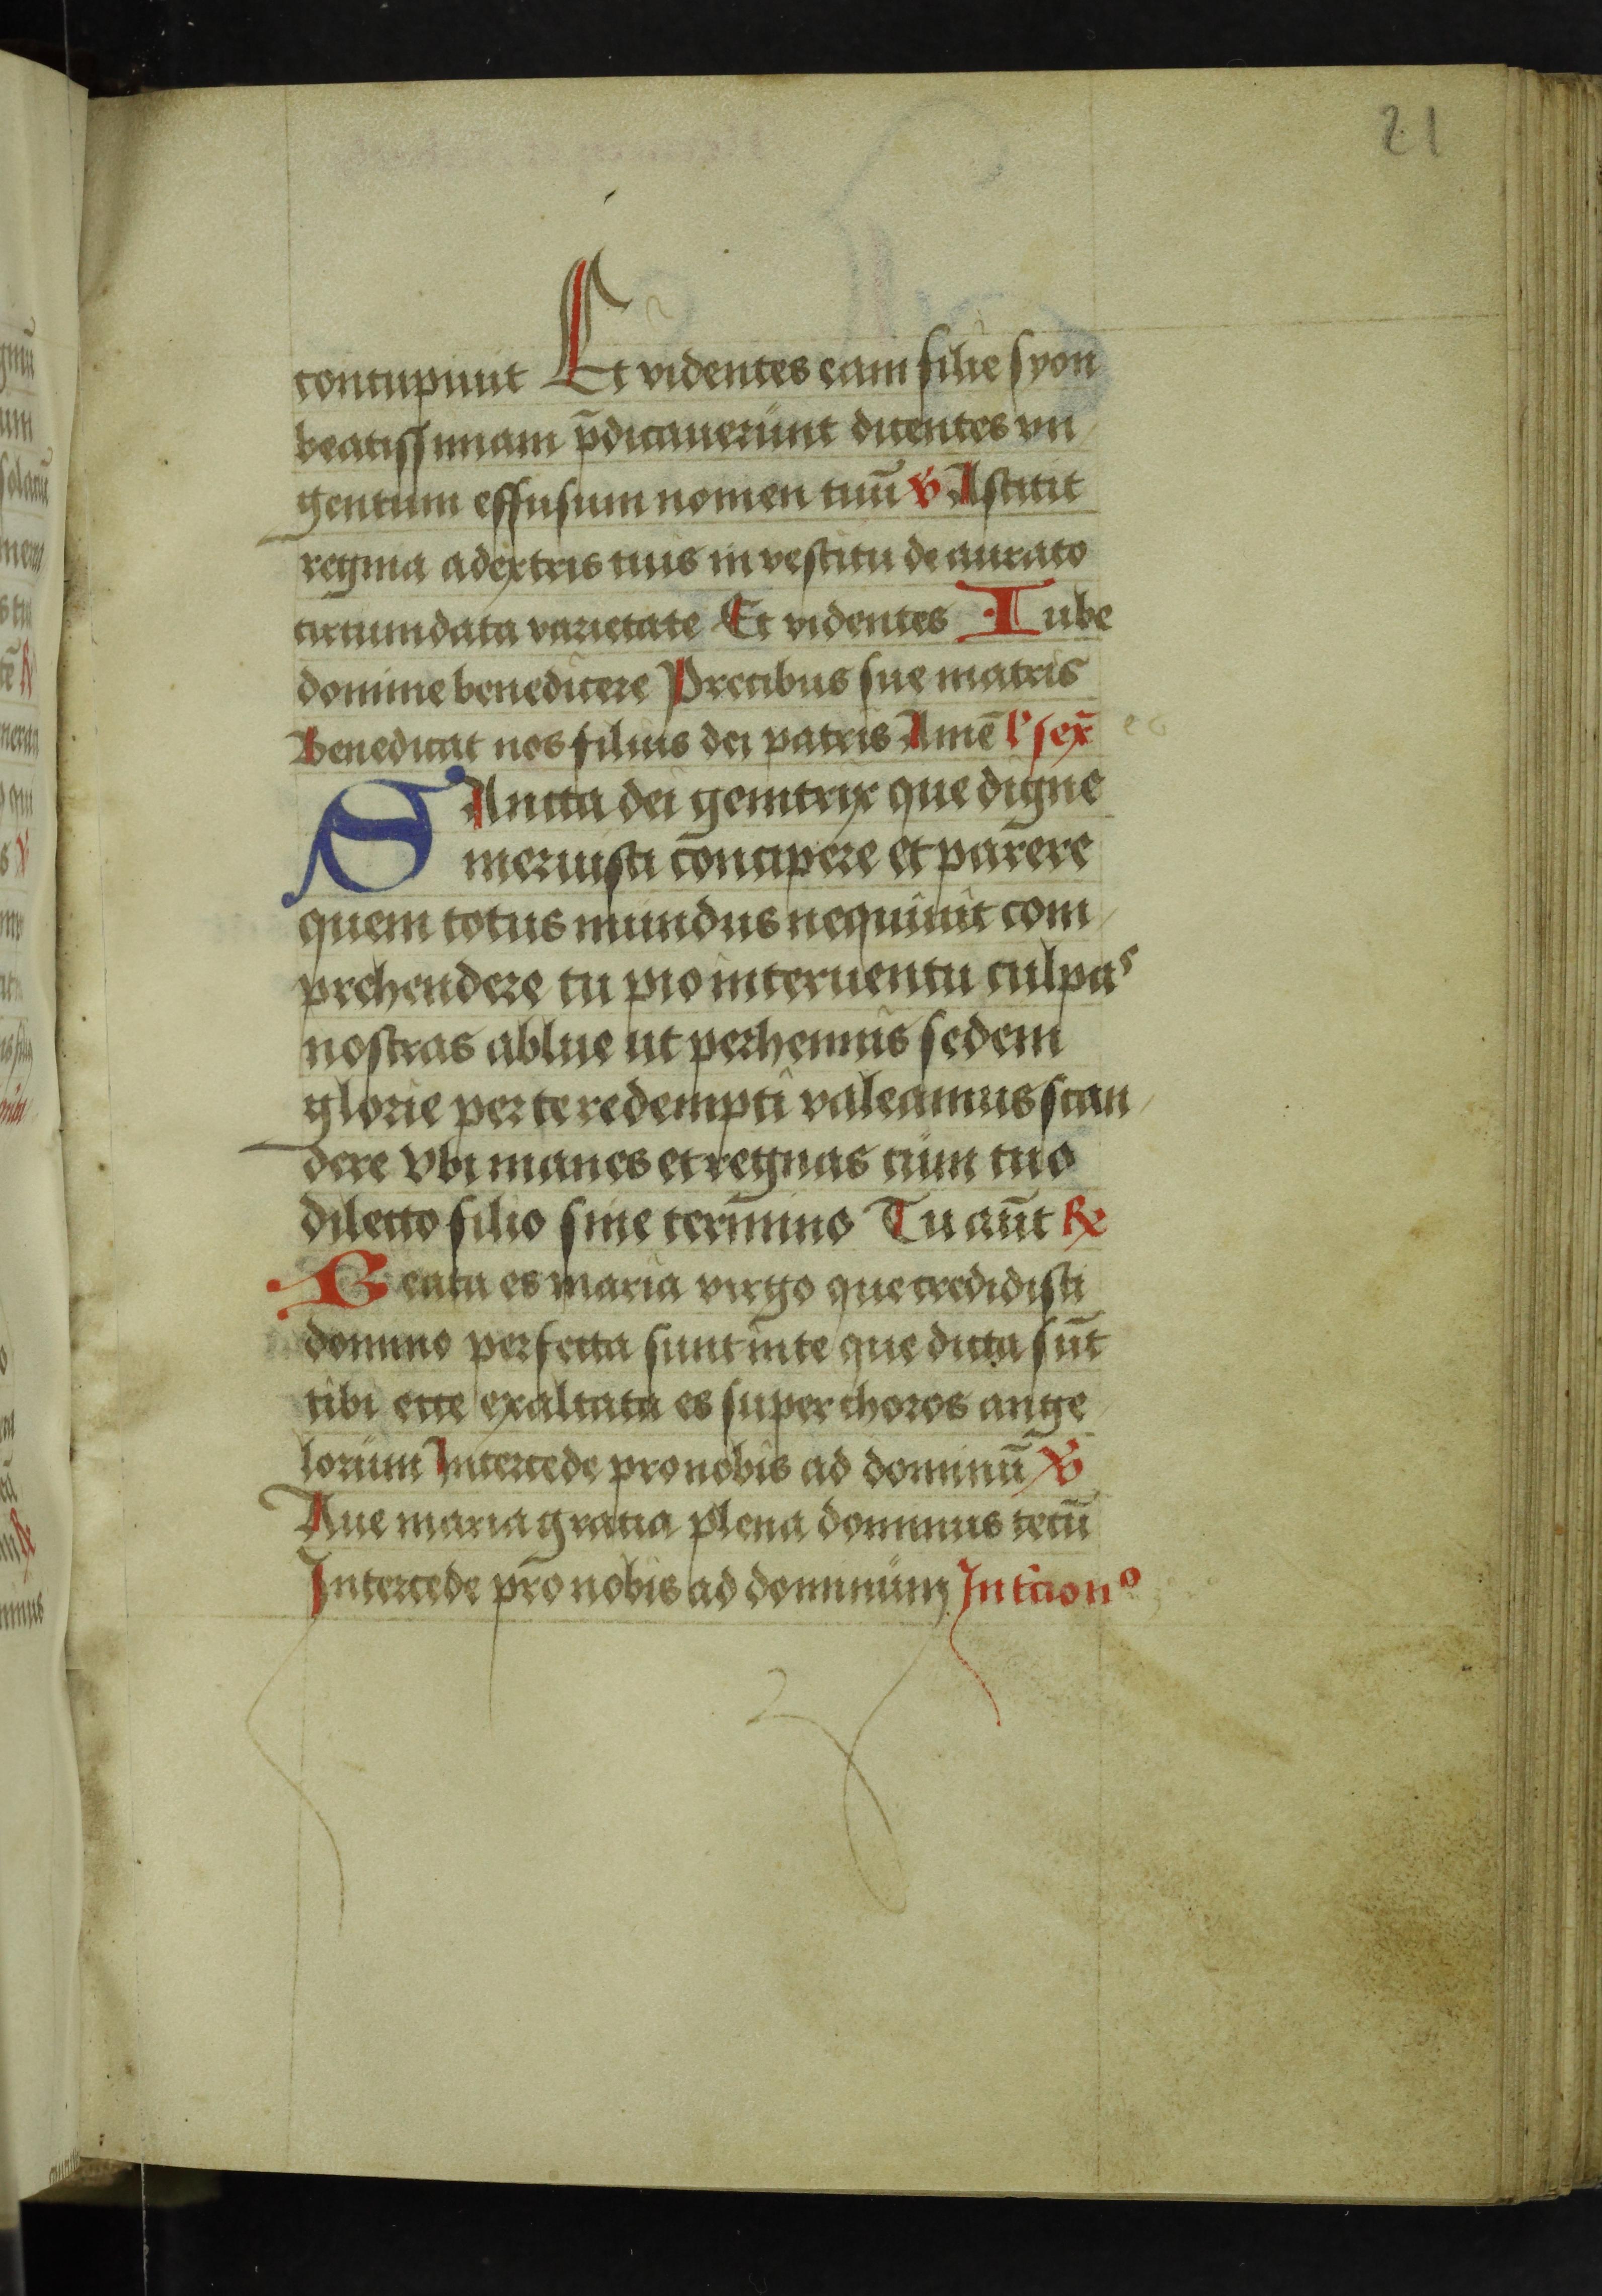 21
concupiuit Et videntes eam filie syon
beatissimam p̄dicauerunt dicentes vn
gentum effusum nomen tuū ℣ Astitit
regina adextris tuis in vestitu deaurato
circumdata varietate Et videntes Iube
domine benedicere Precibus sue matris
Benedicat nos filius dei patris Amē
SAncta dei genitrix que digne
meruisti concipere et parere
quem totus mundus nequiuit com
prehendere tu pio interuentu culpas
nostras ablue ut perhennis sedem
glorie per te redempti valeamus scan
dere vbi manes et regnas cum tuo
dilecto filio sine termino Tu aūt ℟
Beata es maria virgo que credidisti
domino perfecta sunt in te que dicta sūt
tibi ecce exaltata es super choros ange
lorum Intercede pro nobis ad dominū ℣
Aue maria gratia plena dominus tecū
Intercede pro nobis ad dominum